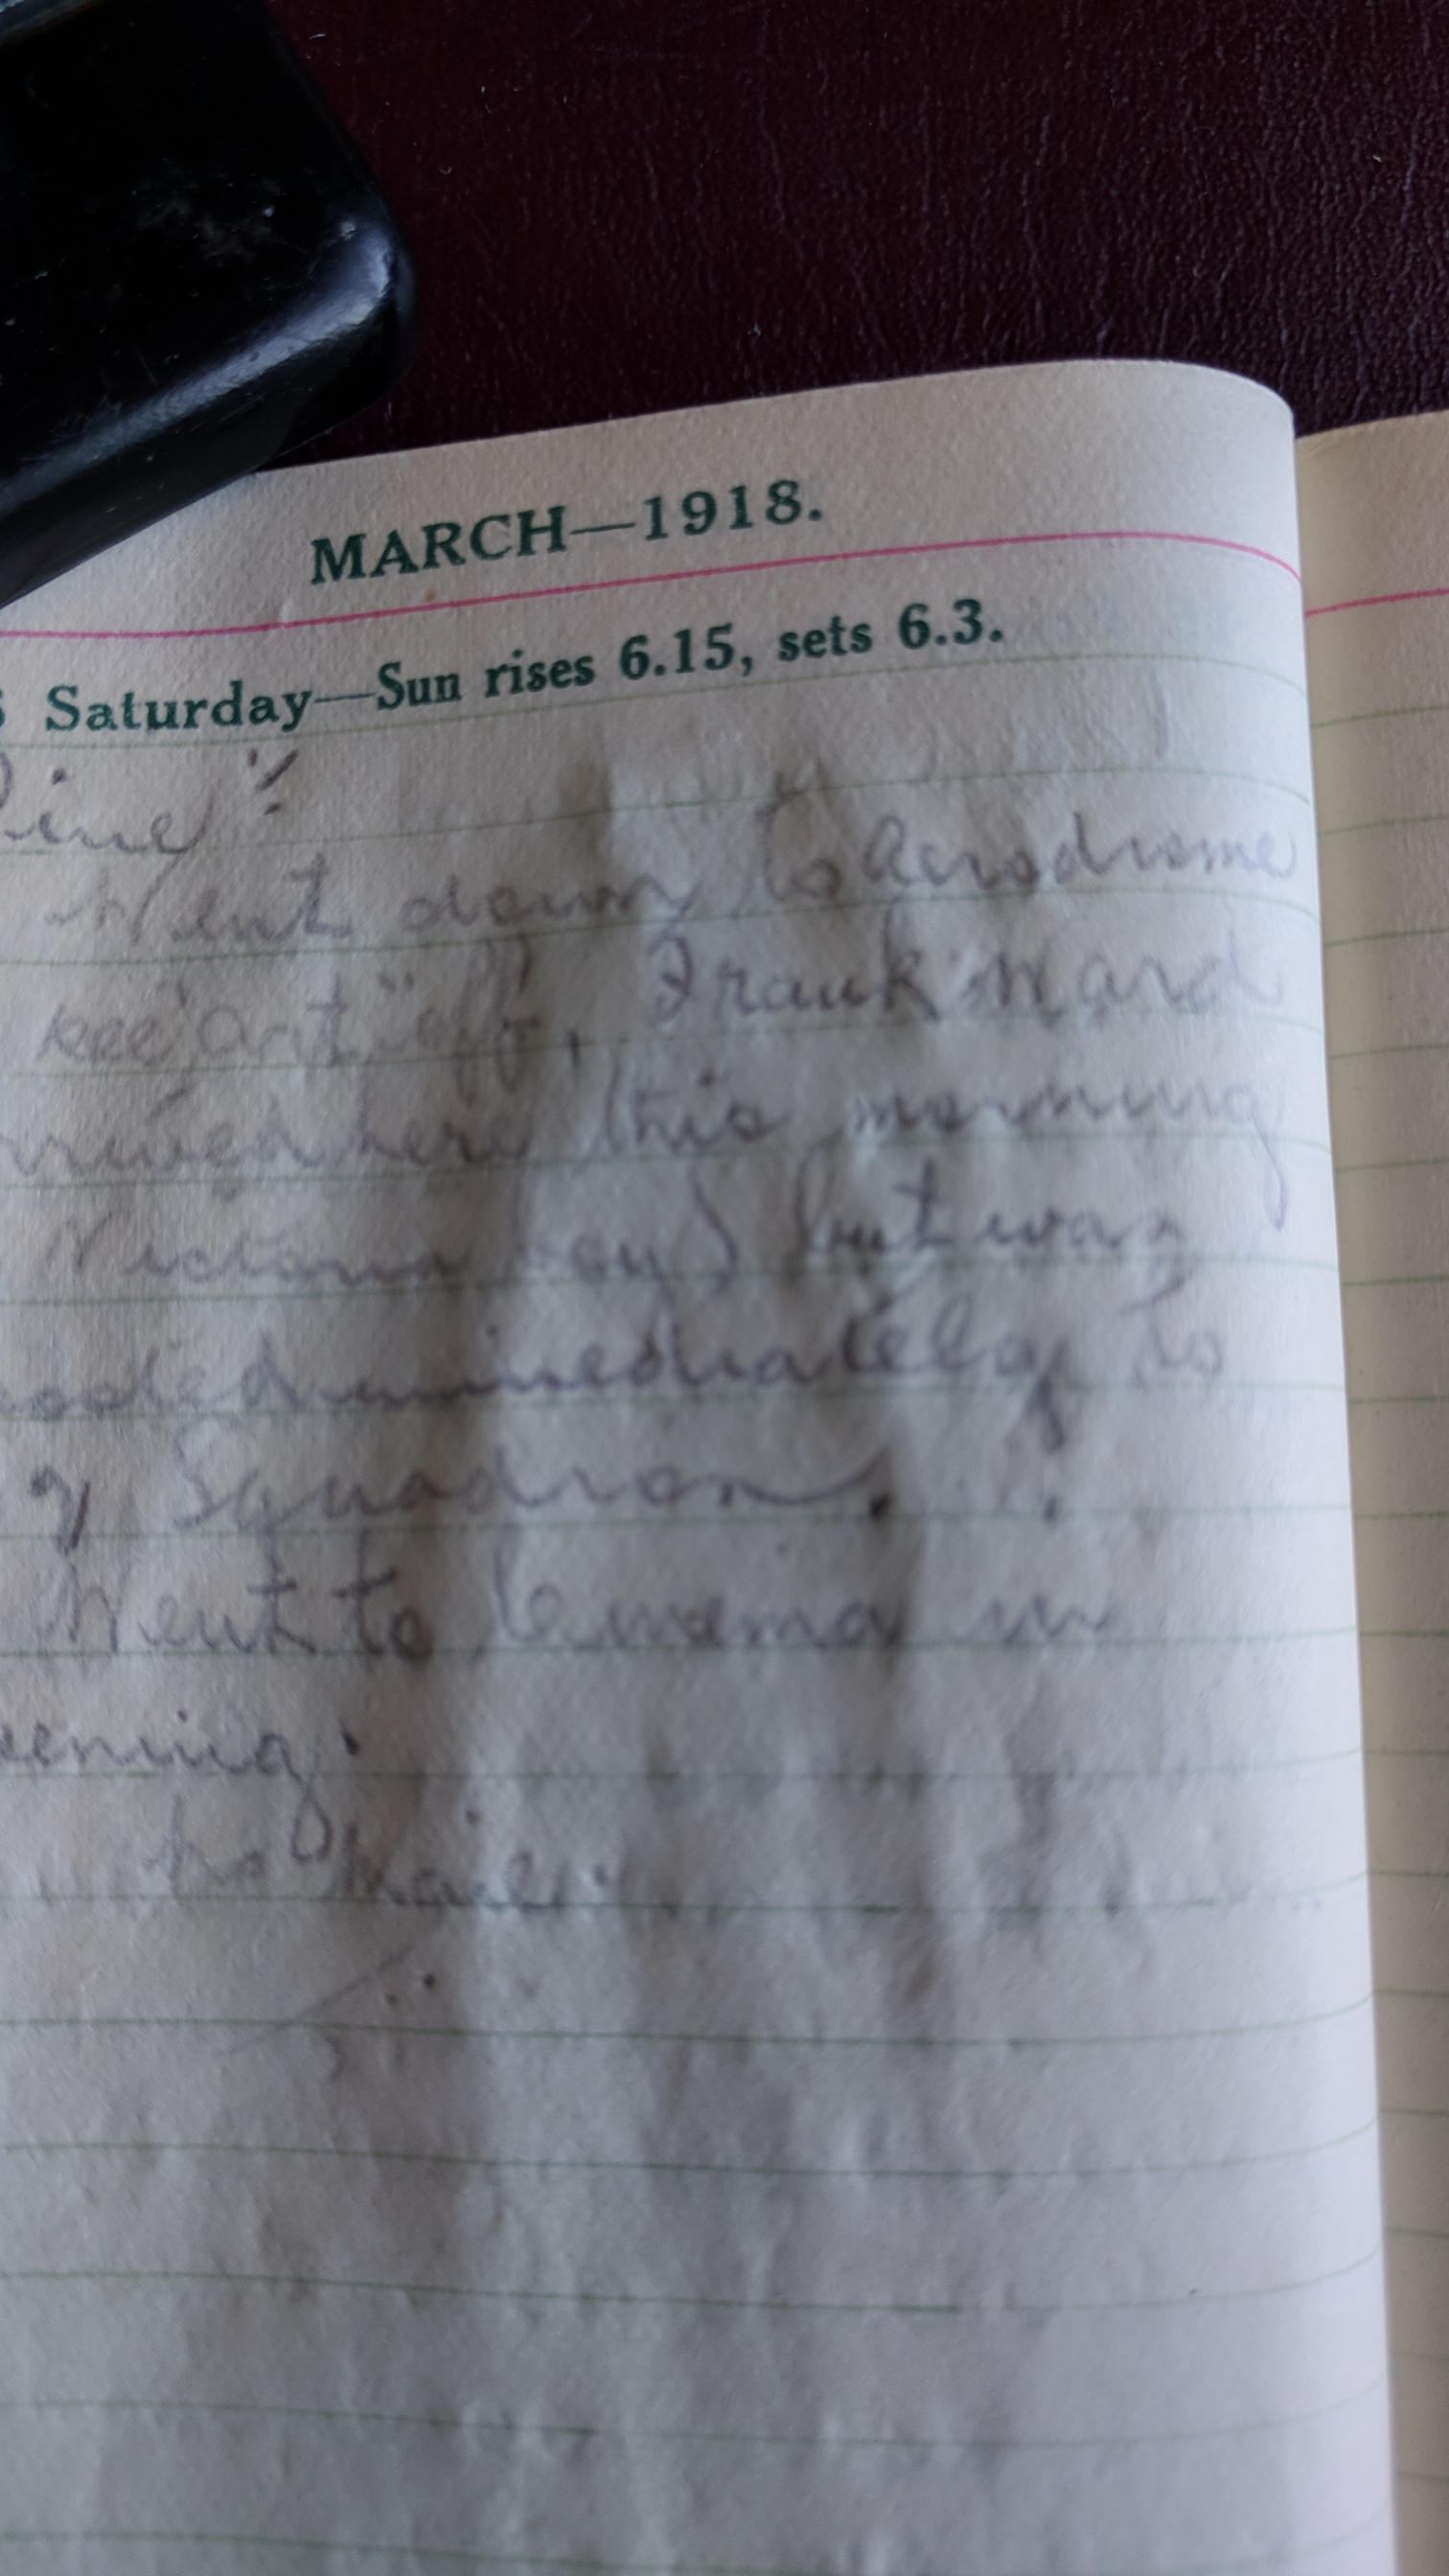 MARCH—1918.
Saturday—Sun rises 6.15, sets 6.3.
Went down to Aerodrome
Frank Ward
here this morning
Victoria boy) but was
immediately to
Squadron.
Went to Cinema in
No Mail.